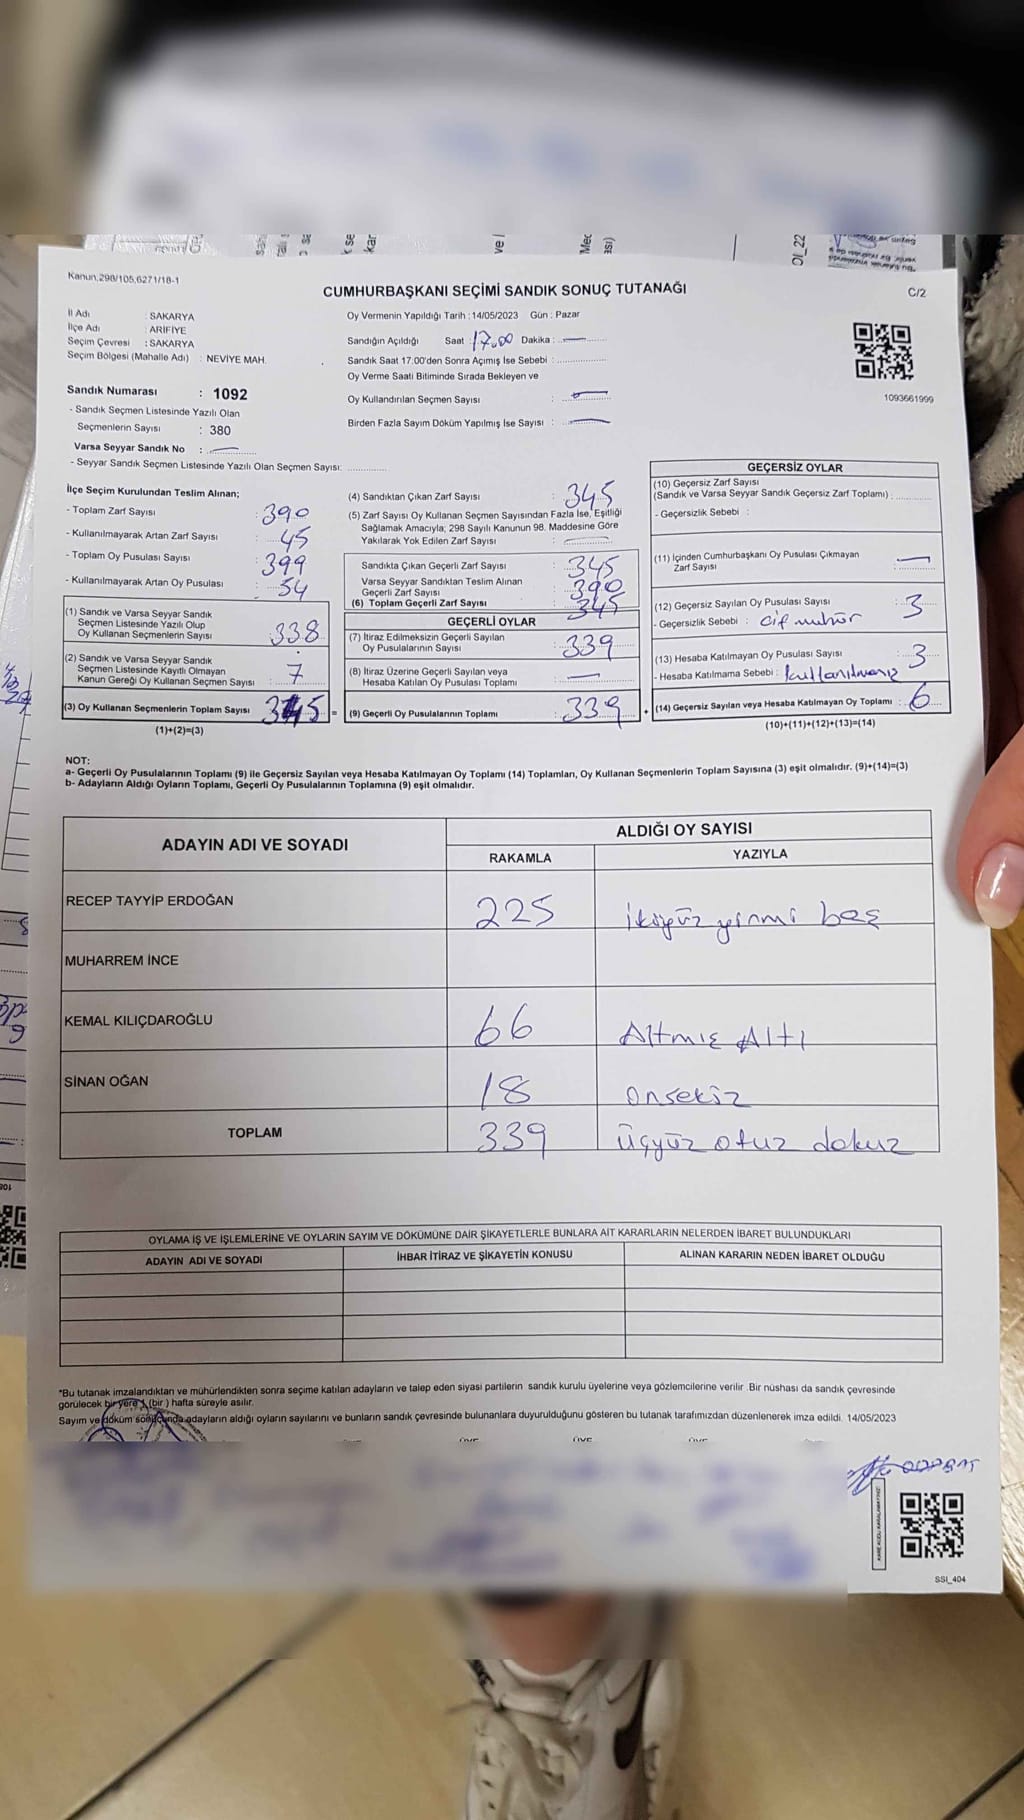 Kanun,298/105,6271/18-1
CUMHURBAŞKANI SEÇİMİ SANDIK SONUÇ TUTANAĞI
C/2
İl Adı : SAKARYA
İlçe Adı : ARİFİYE
Seçim Çevresi : SAKARYA
Seçim Bölgesi (Mahalle Adı) : NEVİYE MAH.
Sandık Numarası : 1092
- Sandık Seçmen Listesinde Yazılı Olan
Seçmenlerin Sayısı : 380
Varsa Seyyar Sandık No :
- Seyyar Sandık Seçmen Listesinde Yazılı Olan Seçmen Sayısı:
Oy Vermenin Yapıldığı Tarih :14/05/2023 Gün : Pazar
Sandığın Açıldığı Saat : 17.00 Dakika :
Sandık Saat 17:00'den Sonra Açımış İse Sebebi :
Oy Verme Saati Bitiminde Sırada Bekleyen ve
Oy Kullandırılan Seçmen Sayısı :
Birden Fazla Sayım Döküm Yapılmış İse Sayısı :
1093661999
İlçe Seçim Kurulundan Teslim Alınan;
- Toplam Zarf Sayısı : 390
- Kullanılmayarak Artan Zarf Sayısı : 45
- Toplam Oy Pusulası Sayısı : 399
- Kullanılmayarak Artan Oy Pusulası : 54
(1) Sandık ve Varsa Seyyar Sandık
Seçmen Listesinde Yazılı Olup
Oy Kullanan Seçmenlerin Sayısı : 338
(2) Sandık ve Varsa Seyyar Sandık
Seçmen Listesinde Kayıtlı Olmayan
Kanun Gereği Oy Kullanan Seçmen Sayısı : 7
(3) Oy Kullanan Seçmenlerin Toplam Sayısı 345 =
(1)+(2)=(3)
(4) Sandıktan Çıkan Zarf Sayısı : 345
(5) Zarf Sayısı Oy Kullanan Seçmen Sayısından Fazla İse, Eşitliği
Sağlamak Amacıyla; 298 Sayılı Kanunun 98. Maddesine Göre
Yakılarak Yok Edilen Zarf Sayısı :
Sandıkta Çıkan Geçerli Zarf Sayısı : 345
Varsa Seyyar Sandıktan Teslim Alınan
Geçerli Zarf Sayısı : 390
(6) Toplam Geçerli Zarf Sayısı : 345
GEÇERLİ OYLAR
(7) İtiraz Edilmeksizin Geçerli Sayılan
Oy Pusulalarının Sayısı : 339
(8) İtiraz Üzerine Geçerli Sayılan veya
Hesaba Katılan Oy Pusulası Toplamı :
(9) Geçerli Oy Pusulalarının Toplamı : 339 +
GEÇERSİZ OYLAR
(10) Geçersiz Zarf Sayısı
(Sandık ve Varsa Seyyar Sandık Geçersiz Zarf Toplamı) :
- Geçersizlik Sebebi :
(11) İçinden Cumhurbaşkanı Oy Pusulası Çıkmayan
Zarf Sayısı :
(12) Geçersiz Sayılan Oy Pusulası Sayısı : 3
- Geçersizlik Sebebi : çif mühür
(13) Hesaba Katılmayan Oy Pusulası Sayısı : 3
- Hesaba Katılmama Sebebi :
(14) Geçersiz Sayılan veya Hesaba Katılmayan Oy Toplamı : 6
(10)+(11)+(12)+(13)=(14)
NOT:
a- Geçerli Oy Pusulalarının Toplamı (9) ile Geçersiz Sayılan veya Hesaba Katılmayan Oy Toplamı (14) Toplamları, Oy Kullanan Seçmenlerin Toplam Sayısına (3) eşit olmalıdır. (9)+(14)=(3)
b- Adayların Aldığı Oyların Toplamı, Geçerli Oy Pusulalarının Toplamına (9) eşit olmalıdır.
ADAYIN ADI VE SOYADI
ALDIĞI OY SAYISI
RAKAMLA YAZIYLA
RECEP TAYYİP ERDOĞAN 225 ikiyüz yirmi beş
MUHARREM İNCE
KEMAL KILIÇDAROĞLU 66 Altmış Altı
SİNAN OĞAN 18 onsekiz
TOPLAM 339 üçyüz otuz dokuz
OYLAMA İŞ VE İŞLEMLERİNE VE OYLARIN SAYIM VE DÖKÜMÜNE DAİR ŞİKAYETLERLE BUNLARA AİT KARARLARIN NELERDEN İBARET BULUNDUKLARI
ADAYIN ADI VE SOYADI İHBAR İTİRAZ VE ŞİKAYETİN KONUSU ALINAN KARARIN NEDEN İBARET OLDUĞU
*Bu tutanak imzalandıktan ve mühürlendikten sonra seçime katılan adayların ve talep eden siyasi partilerin sandık kurulu üyelerine veya gözlemcilerine verilir. Bir nüshası da sandık çevresinde
görülecek bir yere 1 (bir ) hafta süreyle asılır.
Sayım ve döküm sonucunda adayların aldığı oyların sayılarını ve bunların sandık çevresinde bulunanlara duyurulduğunu gösteren bu tutanak tarafımızdan düzenlenerek imza edildi. 14/05/2023
SSI_404